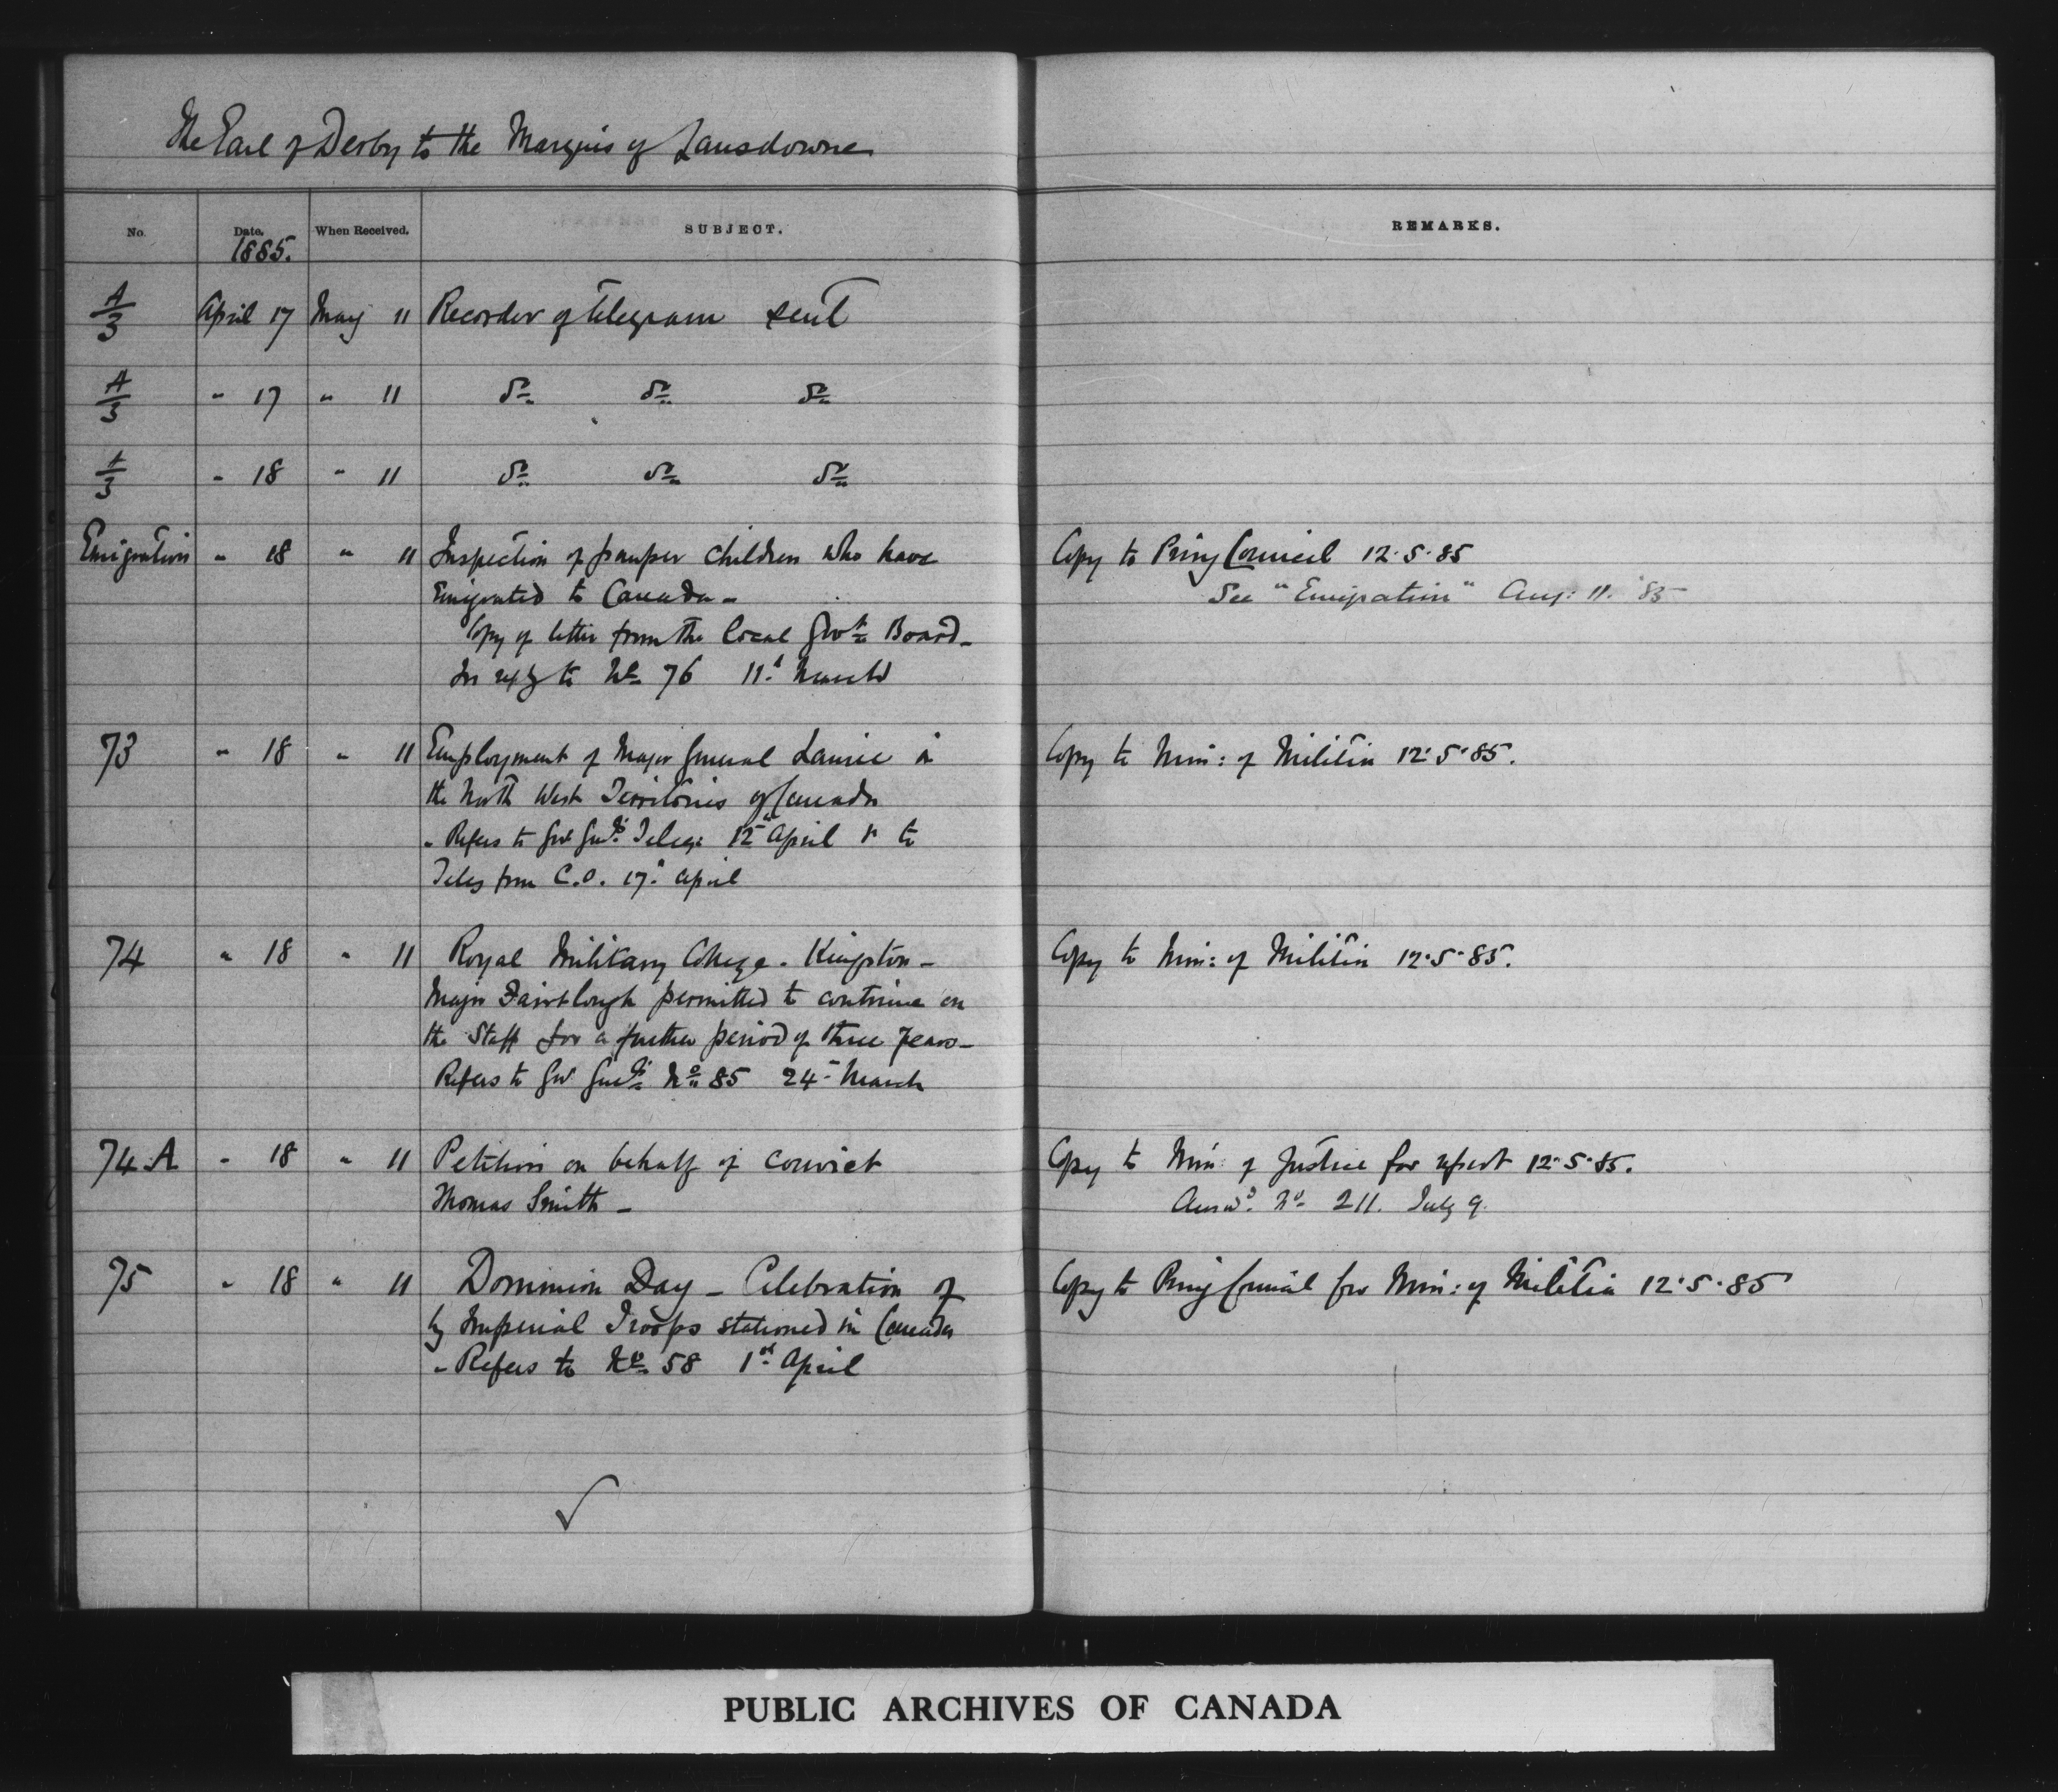 The Earl of Derby to the Marquis of Lansdowne
No. Date. When Received. SUBJECT. REMARKS.
1885.
A/3 April 17 May 11 Recorder of telegram sent
A/3 " 17 " 11 Do Do Do
A/3 " 18 " 11 Do Do Do
Emigration " 18 " 11 Inspection of pauper children who have Copy to Privy Council 12.5.85
Emigrated to Canada - See "Emigration" Aug: 11. '85
Copy of letter from the Local Govt Board -
In reply to No 76 11th March
73 " 18 " 11 Employment of Major General Laurie in Copy to Min: of Militia 12.5.85.
the North West Territories of Canada
- Refers to Gov Genls Teleg: 12th April & to
Teleg from C.O. 17th April
74 " 18 " 11 Royal Military College - Kingston - Copy to Min: of Militia 12.5.85.
Major Fairtlough permitted to continue on
the Staff for a further period of three years -
Refers to Gov Genls No 85 24th March
74.A " 18 " 11 Petition on behalf of convict Copy to Min: of Justice for report 12.5.85.
Thomas Smith - Answd. No 211. July 9.
75 " 18 " 11 Dominion Day - Celebration of Copy to Privy Council for Min: of Militia 12.5.85
by Imperial Troops stationed in Canada
- Refers to No 58 1st April
PUBLIC ARCHIVES OF CANADA